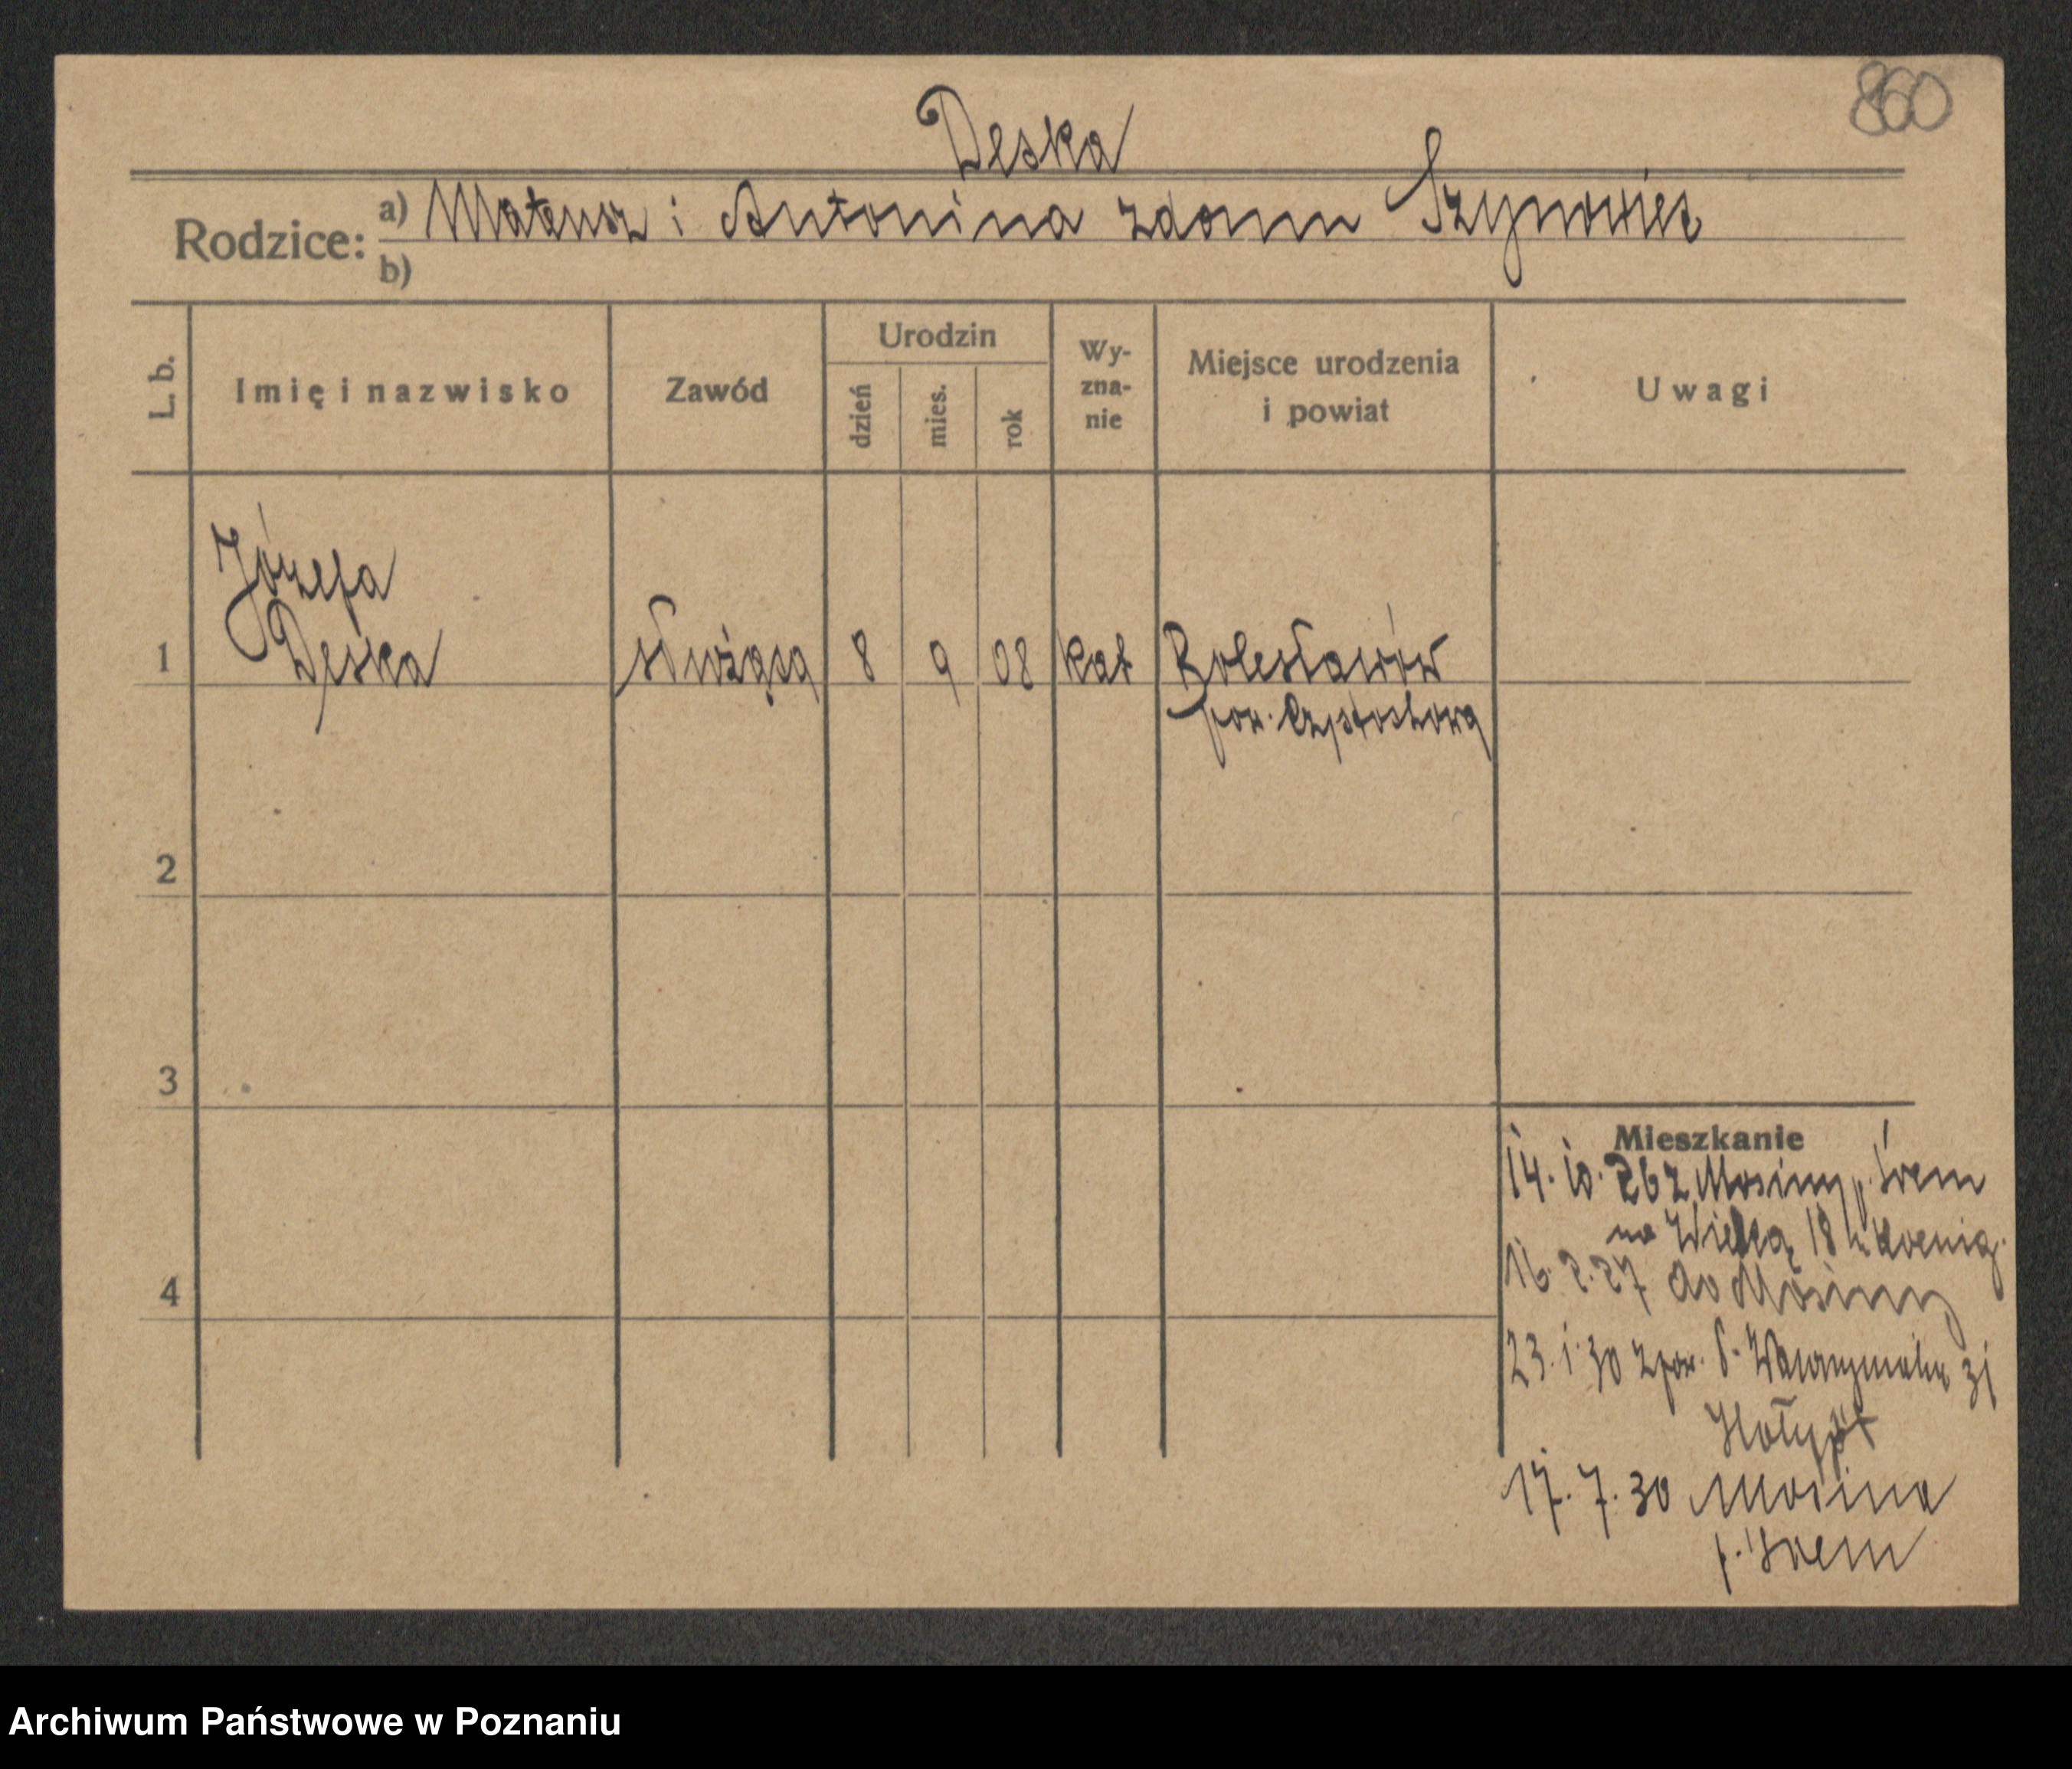 860
Deska
Rodzice: a) Mateusz i Antonina zdomu Szynowiec
b)
L. b. Imię i nazwisko Zawód Urodzin dzień mies. rok Wy-zna-nie Miejsce urodzenia i powiat Uwagi
Józefa
1 Deska służąca 8 9 08 kat Bolesławów
pow. Częstochowa
2
3
Mieszkanie
14. 10. 26 z Mosiny p. Śrem
na Wielką 18
4
16. 2. 27 do Mosiny
23. 1. 30 z pow. Ś. Wawrzyniaka 31
17. 7. 30 Mosina
p. Śrem
Archiwum Państwowe w Poznaniu